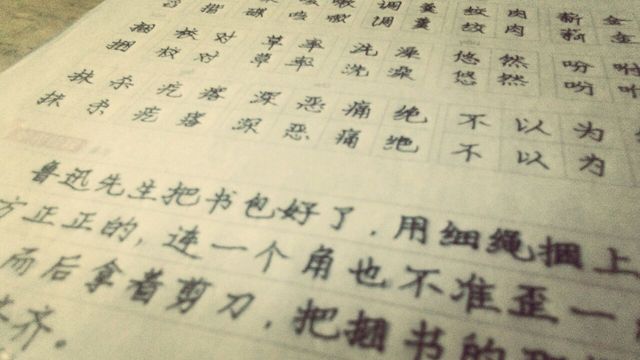 嗽 嗽 调 羹 纹 肉 薪 金
捆 校 对 草 率 洗 澡 悠 然 吩 咐
捆 校 对 草 率 洗 澡 悠 然 吩 咐
抹 杀 疙 瘩 深 恶 痛 绝 不 以 为
抹 杀 疙 瘩 深 恶 痛 绝 不 以 为
鲁迅先生把书包好了，用细绳捆上
方正正的，连一个角也不准歪一
而后拿着剪刀，把捆书的
齐。